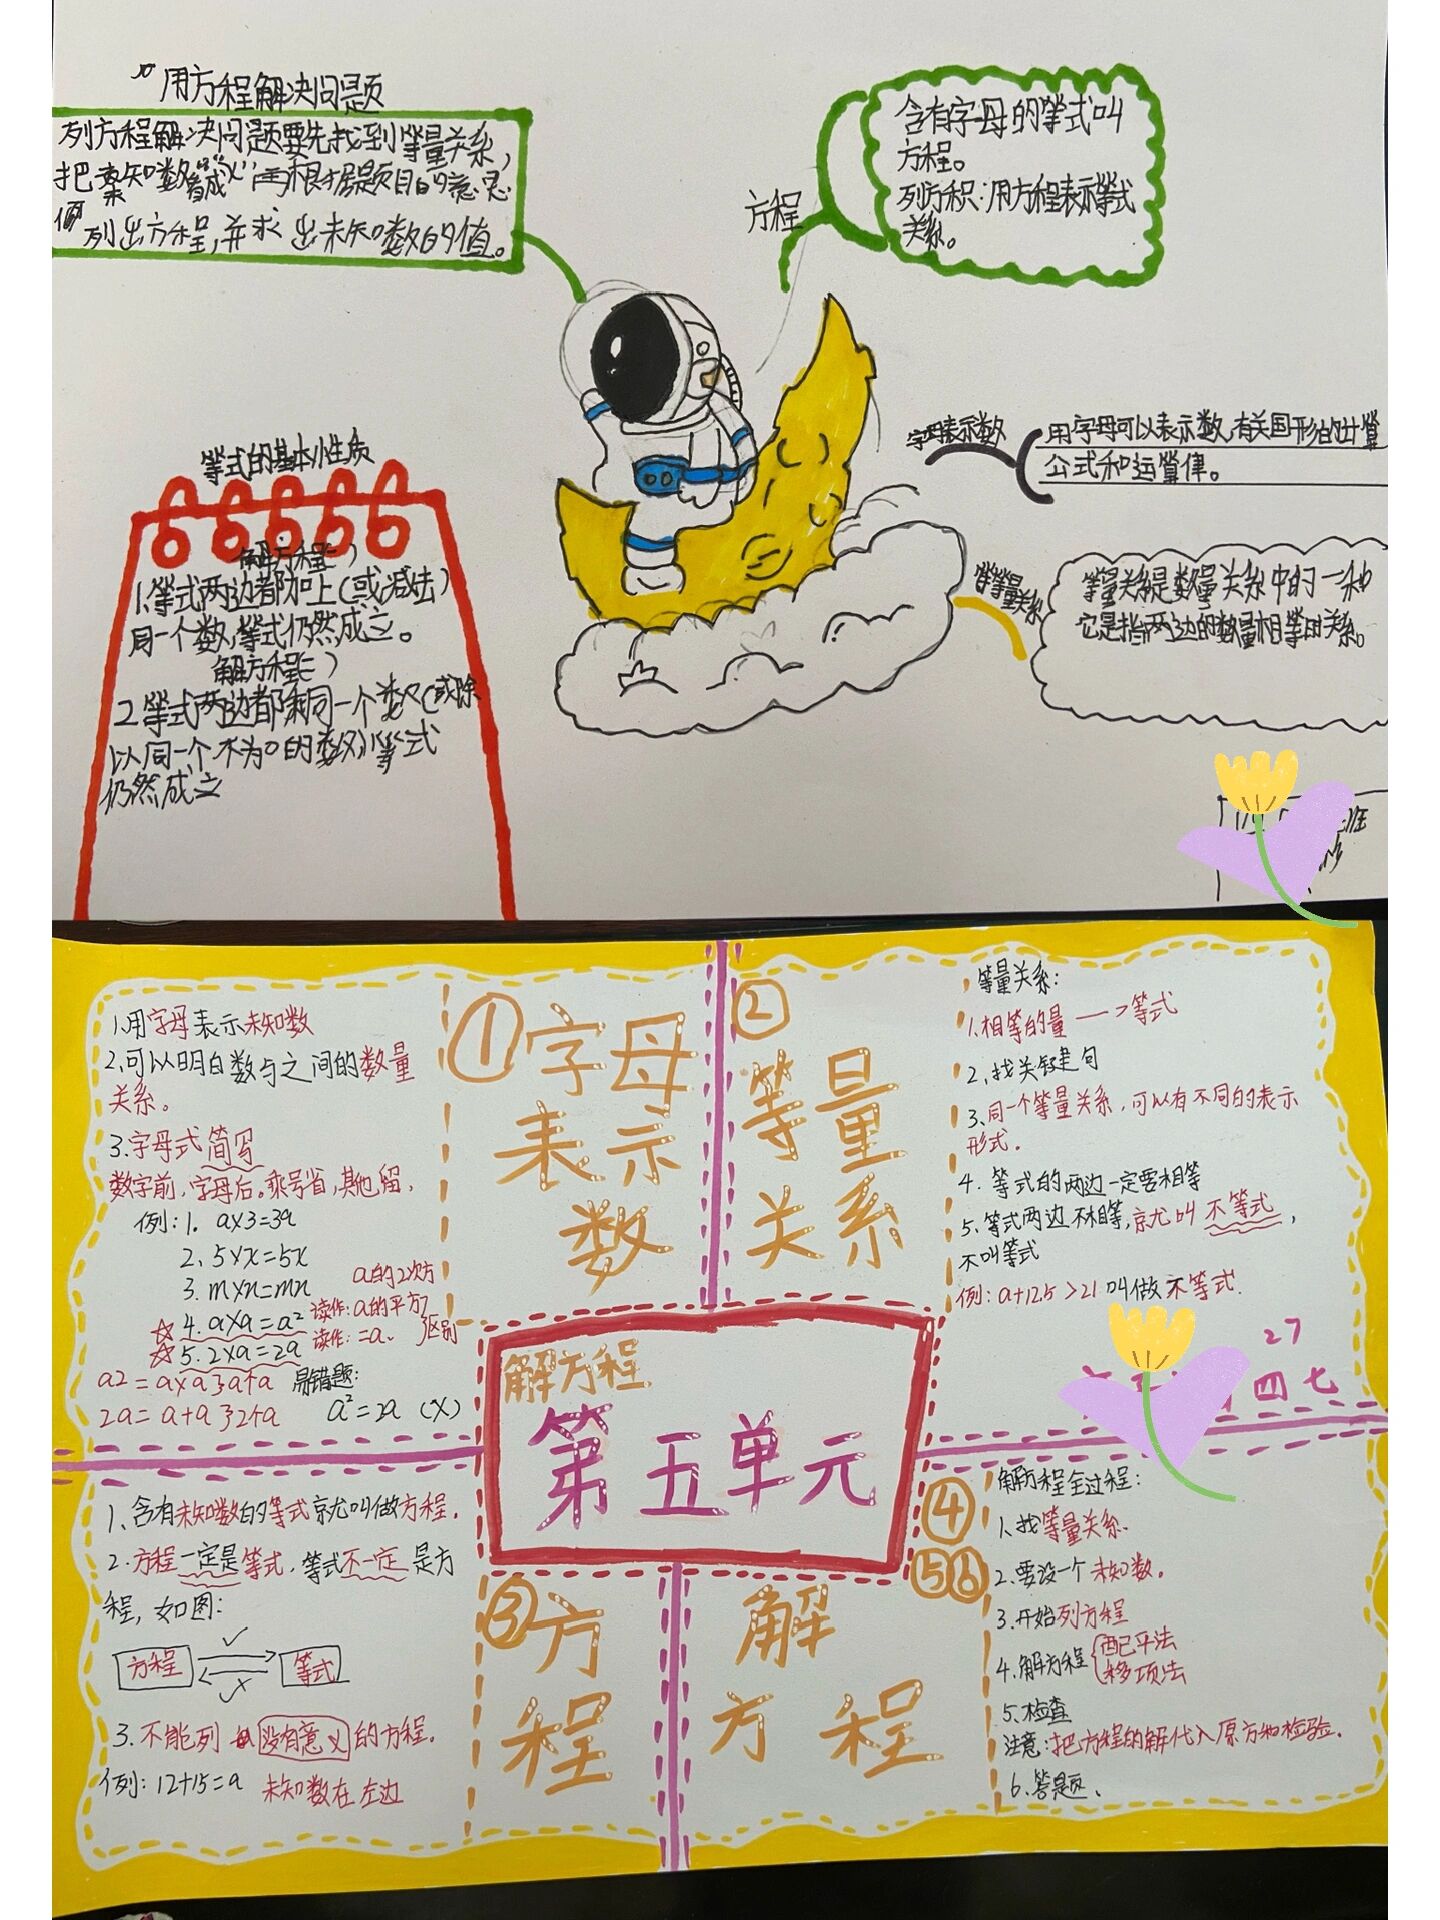 用方程解决问题
列方程解决问题要先找到等量关系,
把 未知数 看成“x”再根据题目的意思
列出方程,并求出未知数的值。
方程
含有字母的等式叫
方程。
列方积:用方程表示等式
关系。
字母表示数
用字母可以表示数,有关图形的计算
公式和运算律。
等式的基本性质
解方程(一)
1.等式两边都加上(或减去)
同一个数,等式仍然成立。
解方程(二)
2.等式两边都乘同一个数(或除
以同一个不为0的数)等式
仍然成立
等等量关系
等量关系是数量关系中的一种
它是指两边的数量相等的关系。
1.用字母表示未知数
2.可以明白数与之间的数量
关系。
3.字母式简写
数字前,字母后。乘号省,其他留,
例:1. a×3=3a
2. 5×x=5x
3. m×n=mn
4. a×a=a²
读作:a的平方
a的2次方
5. 2×a=2a
读作:=a、
区别
a2=a×a 3a+a
2a=a+a 32+a
易错题:
a²=2a (×)
①字母
表示
数
②
等量
关系
等量关系:
1.相等的量—>等式
2.找关键句
3.同一个等量关系,可以有不同的表示
形式.
4. 等式的两边一定要相等
5.等式两边不相等,就叫不等式,
不叫等式
例:a+12.5>21叫做不等式.
27
四七
解方程
第五单元
1、含有未知数的等式就叫做方程.
2.方程一定是等式,等式不一定是方
程,如图:
方程 ✓ ✗ 等式
3.不能列 没有意义的方程.
例:12+15=a 未知数在左边
③方
程
④
⑤⑥
解
方程
解方程全过程:
1.找等量关系.
2.要设一个未知数.
3.开始列方程
4.解方程{配平法
移项法
5.检查
注意:把方程的解代入原方程检验.
6.答题.